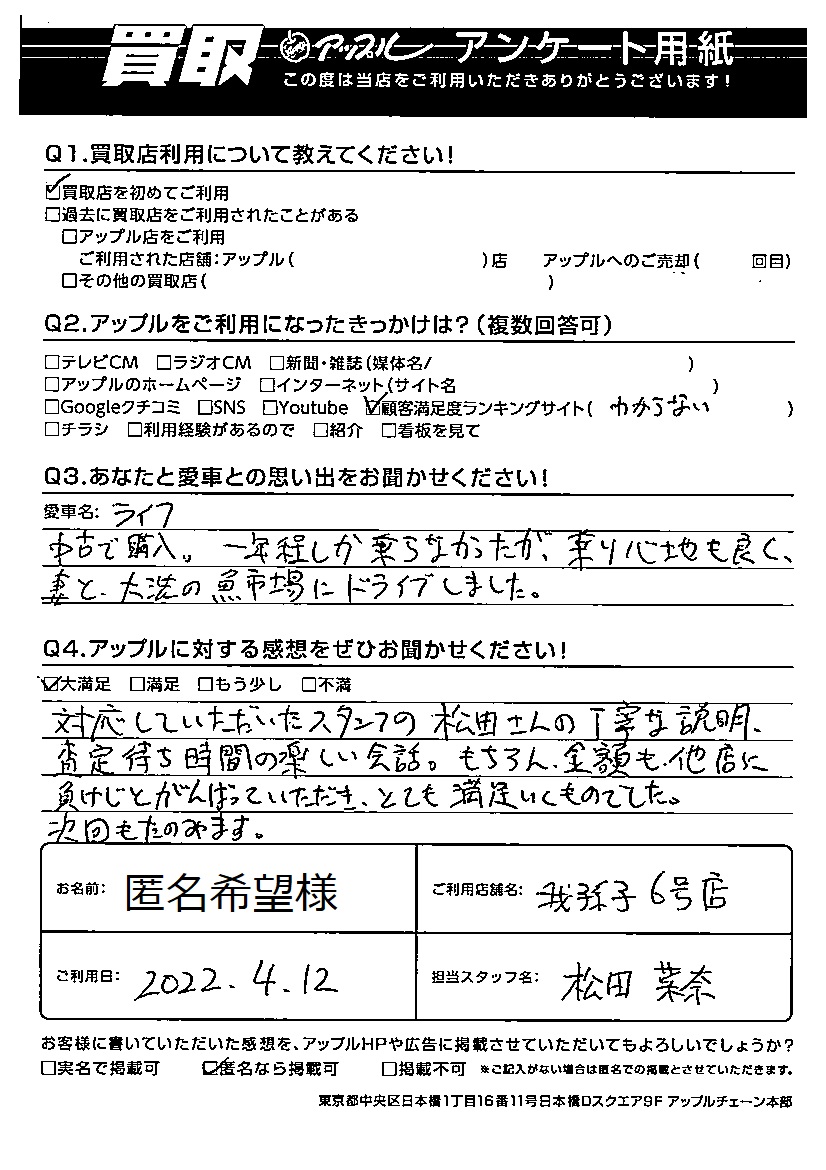 買取 アップル アンケート用紙
この度は当店をご利用いただきありがとうございます!
Q1.買取店利用について教えてください!
☑買取店を初めてご利用
□過去に買取店をご利用されたことがある
□アップル店をご利用
ご利用された店舗:アップル( )店 アップルへのご売却( 回目)
□その他の買取店( )
Q2.アップルをご利用になったきっかけは?(複数回答可)
□テレビCM □ラジオCM □新聞・雑誌(媒体名/ )
□アップルのホームページ □インターネット(サイト名 )
□Googleクチコミ □SNS □Youtube ☑顧客満足度ランキングサイト( わからない )
□チラシ □利用経験があるので □紹介 □看板を見て
Q3.あなたと愛車との思い出をお聞かせください!
愛車名: ライフ
中古で購入。一年程しか乗らなかったが、乗り心地も良く、
妻と、大洗の魚市場にドライブしました。
Q4.アップルに対する感想をぜひお聞かせください!
☑大満足 □満足 □もう少し □不満
対応していただいたスタッフの松田さんの丁寧な説明、
査定待ち時間の楽しい会話。もちろん、金額も、他店に
負けじとがんばっていただき、とても満足いくものでした。
次回もたのみます。
お名前: 匿名希望様
ご利用店舗名: 我孫子6号店
ご利用日: 2022.4.12
担当スタッフ名: 松田 菜奈
お客様に書いていただいた感想を、アップルHPや広告に掲載させていただいてもよろしいでしょうか?
□実名で掲載可 ☑匿名なら掲載可 □掲載不可 ※ご記入がない場合は匿名での掲載とさせていただきます。
東京都中央区日本橋1丁目16番11号日本橋Dスクエア9F アップルチェーン本部